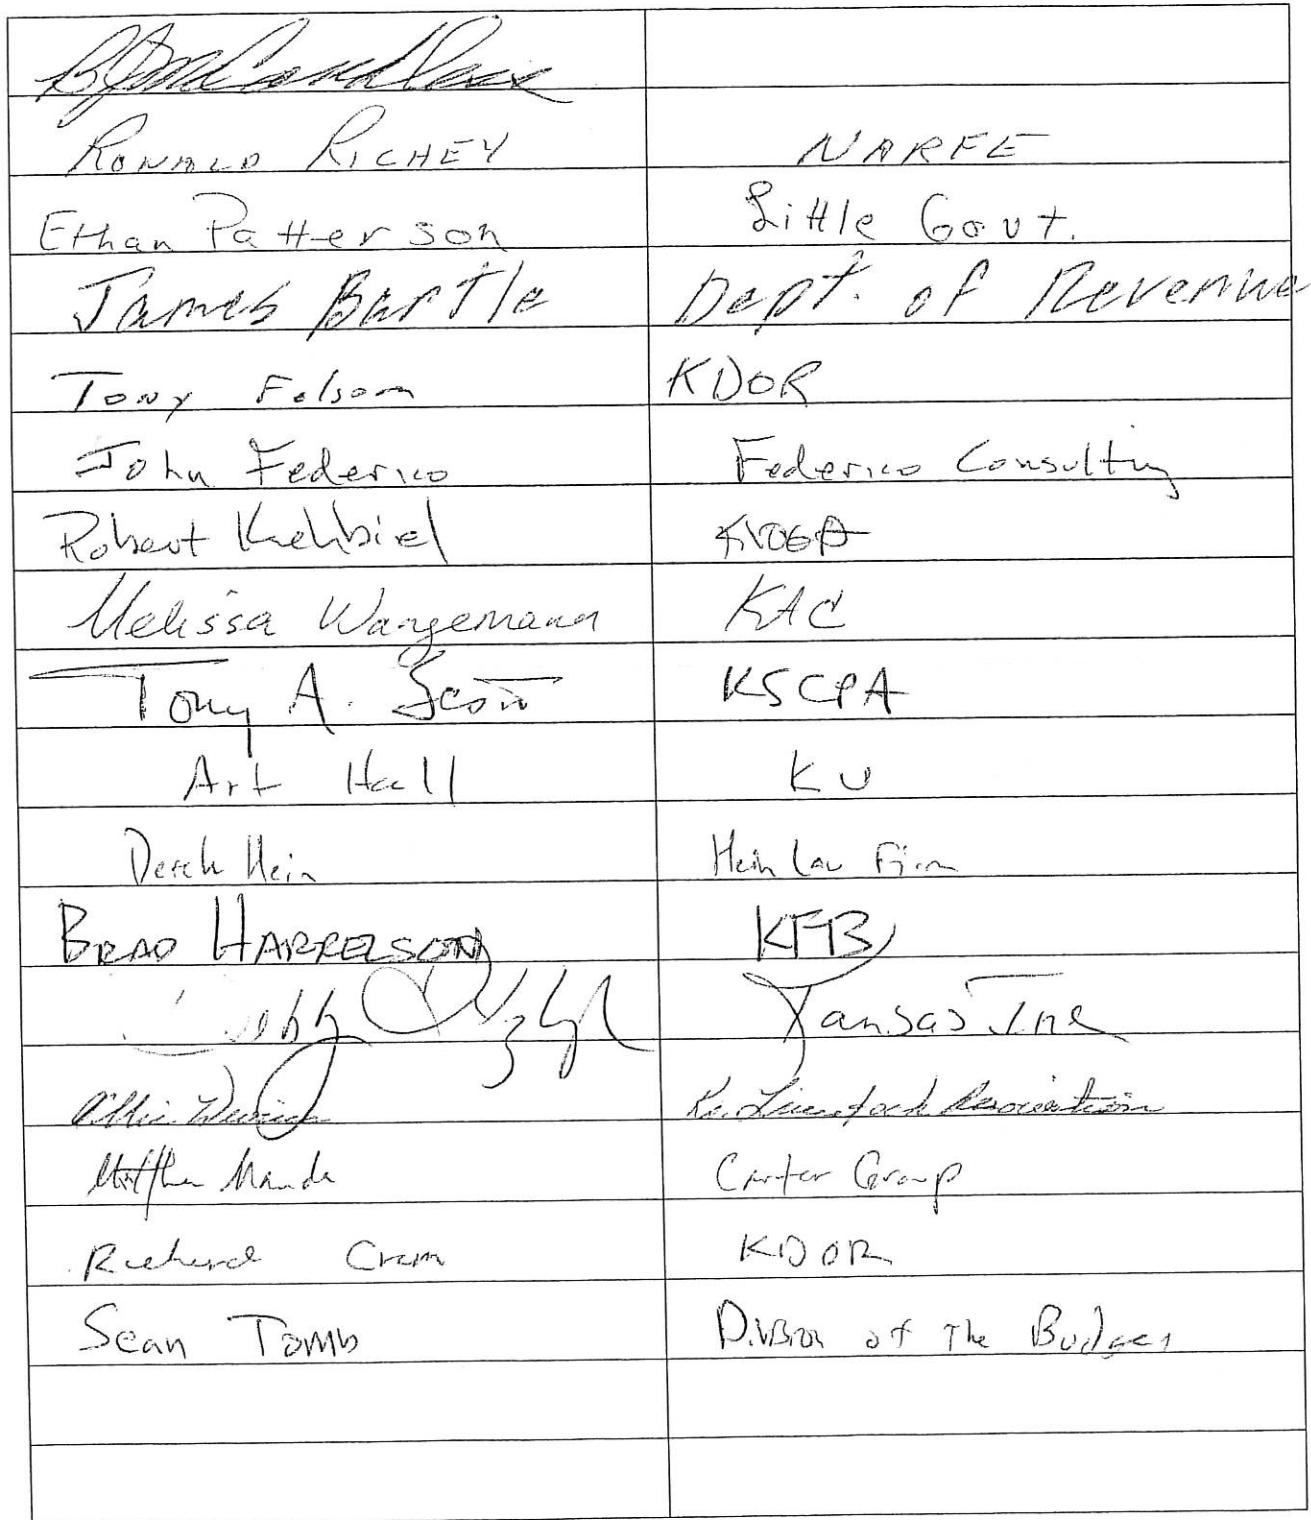 RONALD RICHEY NARFE
Ethan Patterson Little Govt.
James Bartle Dept. of Revenue
Tony Folsom KDOR
John Federico Federico Consulting
Robert Krehbiel KIOGA
Melissa Wangemann KAC
Tony A. Scott KSCPA
Art Hall KU
Derek Hein Hein Law Firm
BRAD HARRELSON KFB
Kansas Inc
Ks. Livestock Association
Carter Group
Richard Cram KDOR
Sean Tomb Division of The Budget